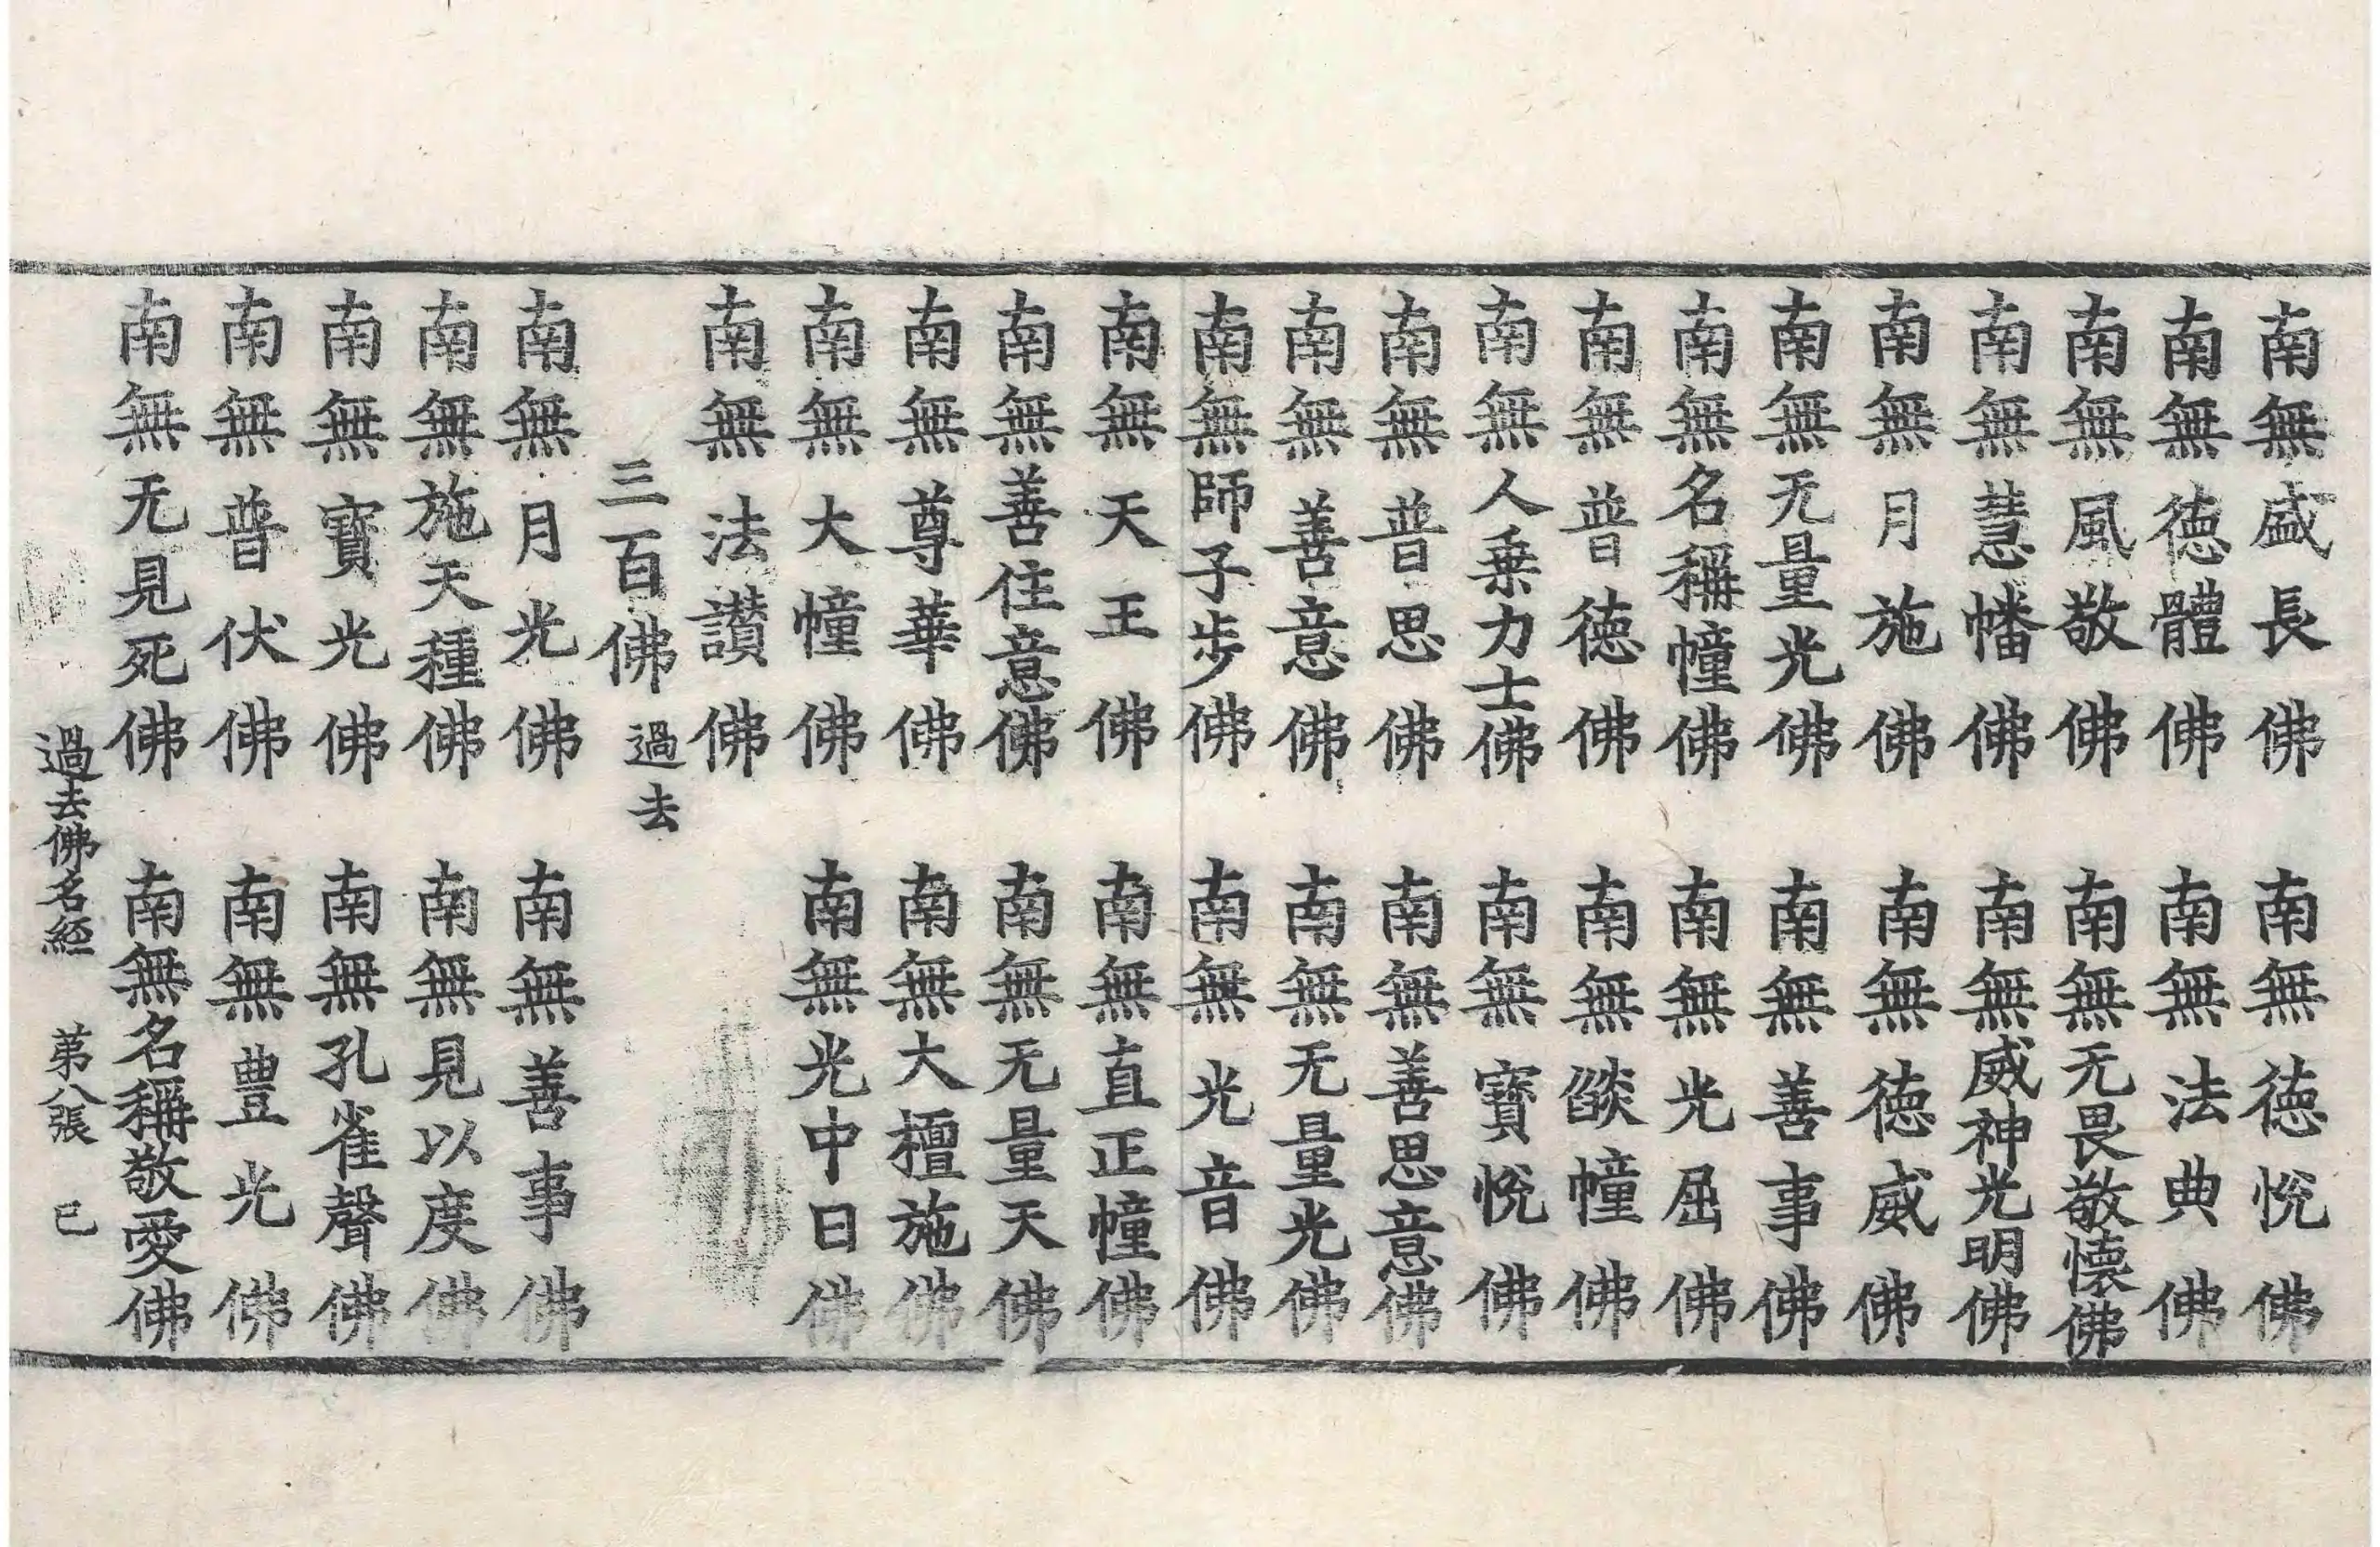 南無盛長佛　南無德悅佛
南無德體佛　南無法典佛
南無風敬佛　南無无畏敬懷佛
南無慧幡佛　南無威神光明佛
南無月施佛　南無德威佛
南無无量光佛　南無善事佛
南無名稱幢佛　南無光屈佛
南無普德佛　南無燄幢佛
南無人乗力士佛　南無寶悅佛
南無普思佛　南無善思意佛
南無善意佛　南無无量光佛
南無師子步佛　南無光音佛
南無天王佛　南無直正幢佛
南無善住意佛　南無无量天佛
南無尊華佛　南無大檀施佛
南無大幢佛　南無光中日佛
南無法讚佛
三百佛過去
南無月光佛　南無善事佛
南無施天種佛　南無見以度佛
南無寶光佛　南無孔雀聲佛
南無普伏佛　南無豊光佛
南無无見死佛　南無名稱敬愛佛
過去佛名経　苐八張　己